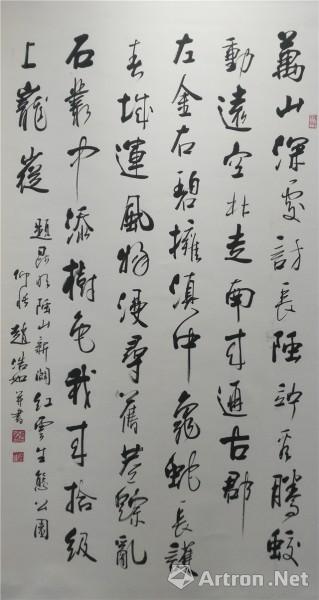 萬山深處訪長訝騰蛟
動遠空北走南來通古郡
左金右碧擁滇中龜蛇長護
春城運風物漫尋舊蹤亂
石叢中添樹色我來拾級
上巃嵸
題昆明山新闢紅雲生態公園
趙浩如并書
Artron.Net